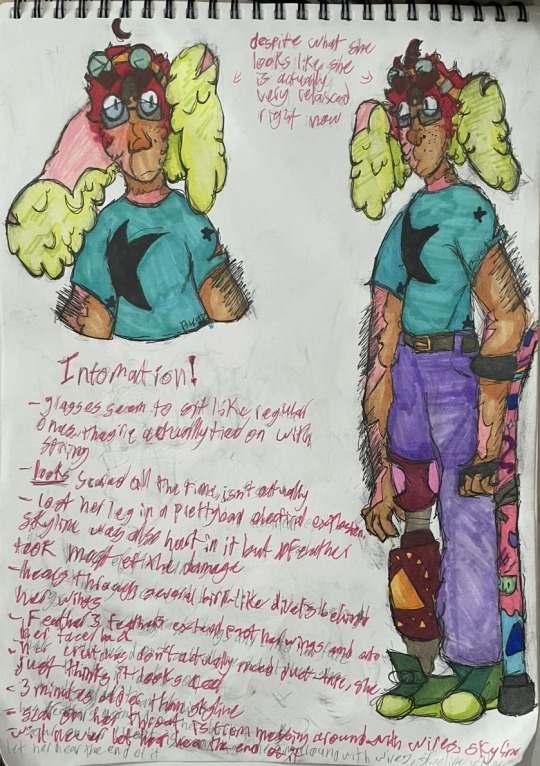 despite what she
looks like, she
is actually
very relaxed
right now
Infomation!
- glasses seem to sit like regular
ones, they're actually tied on with
string
- looks scared all the time, isn't actually
- lost her leg in a pretty bad chemical explosion,
skyline was also hurt in it but
took most of the damage
- hears through several bird-like divets behind
her wings
- Feather's feathers extend past her wings and onto
her face
- her crutches don't actually need duct-tape, she
just thinks it looks
- 3 minutes older than skyline
- scar on her throat is from messing around with wires, skyline
will never let her hear the end of it
let her hear the end of it